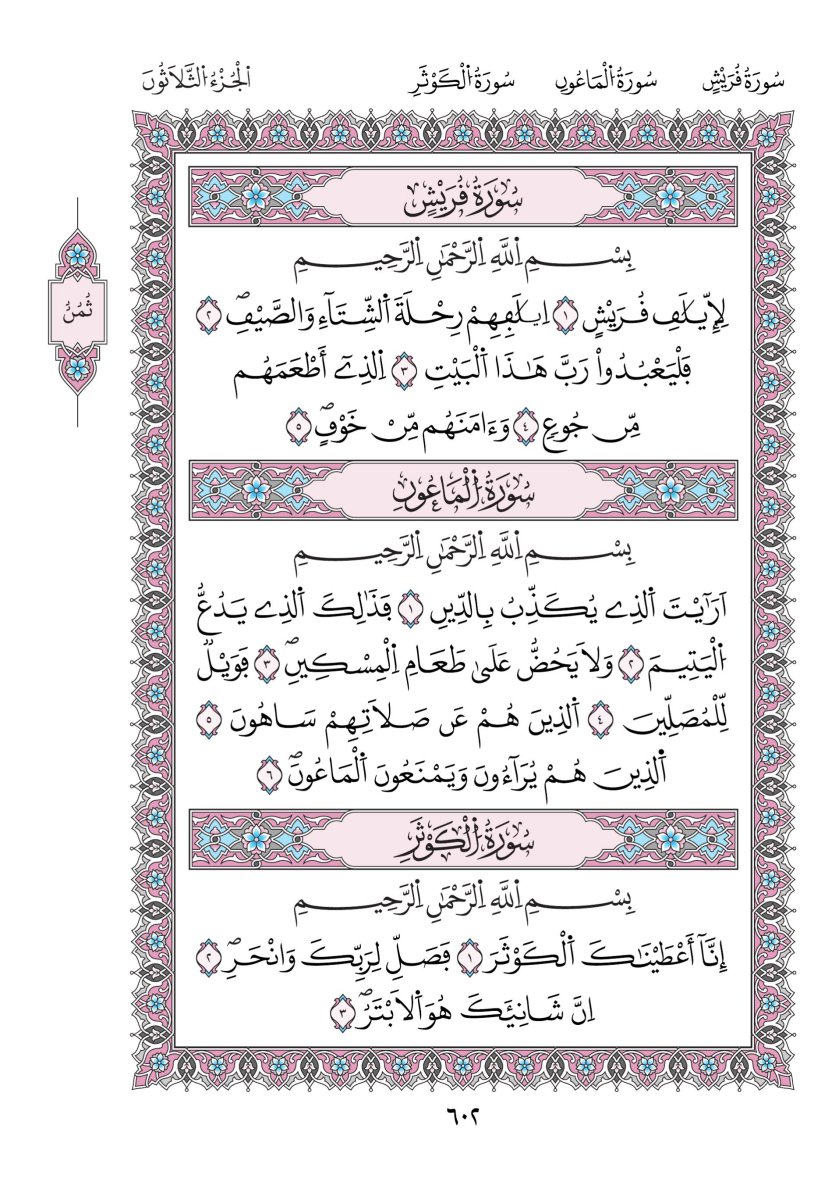 سُورَةُ قُرَيْشٍ سُورَةُ اُ۬لْمَاعُونِ سُورَةُ اُ۬لْكَوْثَرِ اَ۬لْجُزْءُ اُ۬لثَّلَاثُونَ
سُورَةُ قُرَيْشٍ
بِسْمِ اِ۬للَّهِ اِ۬لرَّحْمَٰنِ اِ۬لرَّحِيمِ
لِإِيلَٰفِ قُرَيْشٍ ١ اِۦلَٰفِهِمْ رِحْلَةَ اَ۬لشِّتَآءِ وَالصَّيْفِۖ ٢
فَلْيَعْبُدُواْ رَبَّ هَٰذَا اَ۬لْبَيْتِ ٣ اِ۬لذِےٓ أَطْعَمَهُم
مِّن جُوعٍ ٤ وَءَامَنَهُم مِّنْ خَوْفٍۖ ٥
ثُمُنُ
سُورَةُ اُ۬لْمَاعُونِ
بِسْمِ اِ۬للَّهِ اِ۬لرَّحْمَٰنِ اِ۬لرَّحِيمِ
اَرَٰٓيْتَ اَ۬لذِے يُكَذِّبُ بِالدِّينِ ١ فَذَٰلِكَ اَ۬لذِے يَدُعُّ
اُ۬لْيَتِيمَ ٢ وَلَا يَحُضُّ عَلَىٰ طَعَامِ اِ۬لْمِسْكِينِۖ ٣ فَوَيْلٞ
لِّلْمُصَلِّينَ ٤ اَ۬لذِينَ هُمْ عَن صَلَاتِهِمْ سَاهُونَ ٥
اَ۬لذِينَ هُمْ يُرَآءُونَ وَيَمْنَعُونَ اَ۬لْمَاعُونَۖ ٦
سُورَةُ اُ۬لْكَوْثَرِ
بِسْمِ اِ۬للَّهِ اِ۬لرَّحْمَٰنِ اِ۬لرَّحِيمِ
إِنَّآ أَعْطَيْنَٰكَ اَ۬لْكَوْثَرَ ١ فَصَلِّ لِرَبِّكَ وَانْحَرِۖ ٢
اِنَّ شَانِئَكَ هُوَ اَ۬لَابْتَرُۖ ٣
٦٠٢